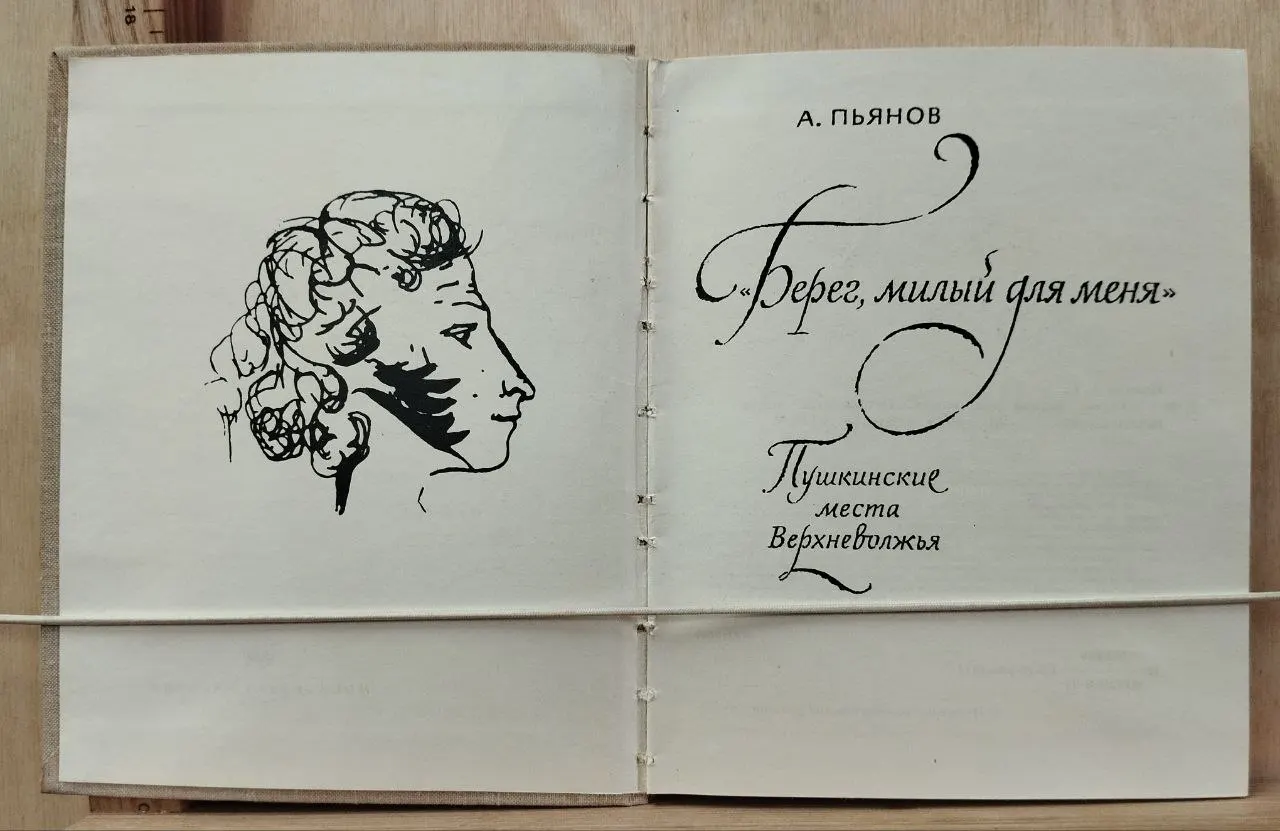 18
А. ПЬЯНОВ
«Берег, милый для меня»
Пушкинские
места
Верхневолжья